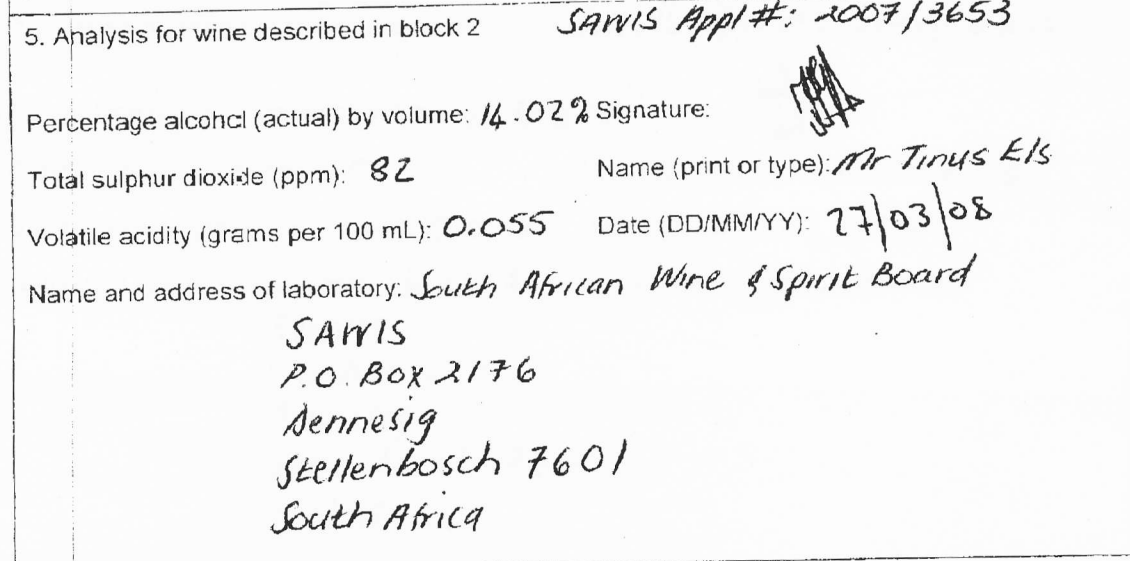 5. Analysis for wine described in block 2 SAWIS Appl #: 2007/3653
Percentage alcohol (actual) by volume: 14.02% Signature:
Total sulphur dioxide (ppm): 82 Name (print or type): Mr Tinus Els
Volatile acidity (grams per 100 mL): 0.055 Date (DD/MM/YY): 27/03/08
Name and address of laboratory: South African Wine & Spirit Board
SAWIS
P.O. Box 2176
Dennesig
Stellenbosch 7601
South Africa